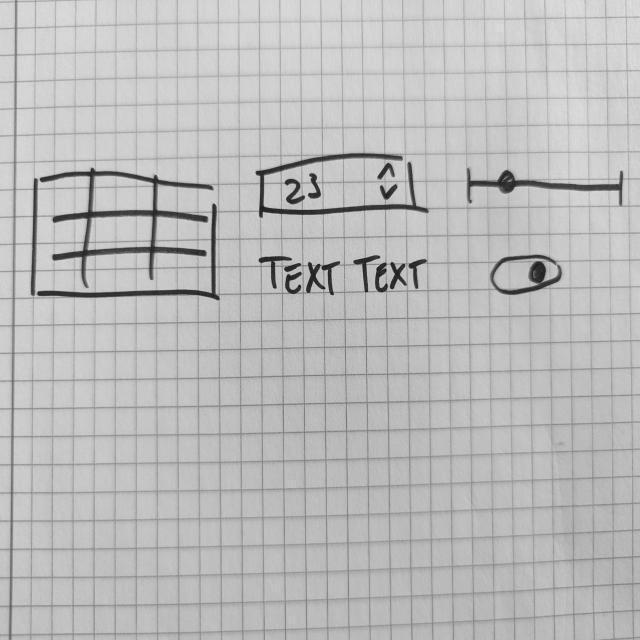 23
TEXT TEXT